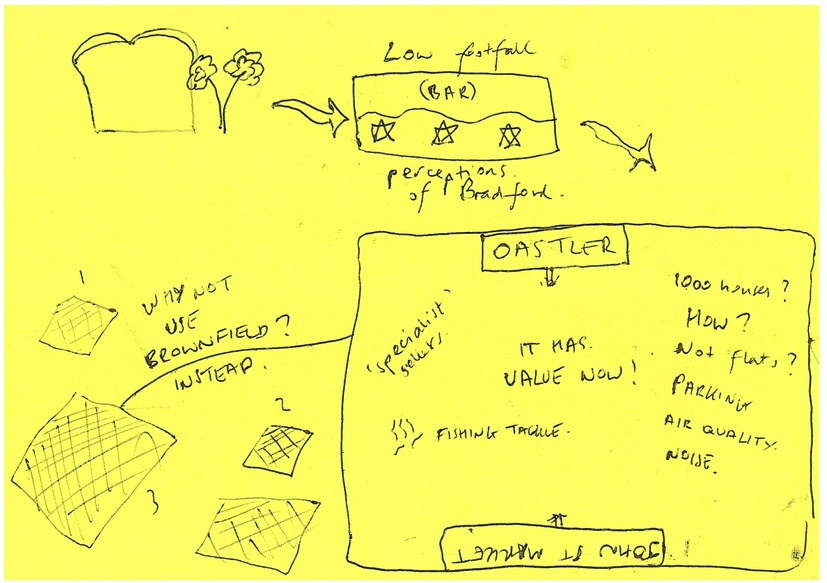 Low footfall
(BAR)
perceptions
of Bradford.
OASTLER
1000 houses?
HOW?
Not flats?
PARKING
AIR QUALITY.
NOISE.
'specialist'
sellers.
IT HAS.
VALUE NOW!
FISHING TACKLE.
1
WHY NOT
USE
BROWNFIELD?
INSTEAD.
2
3
JOHN ST MARKET